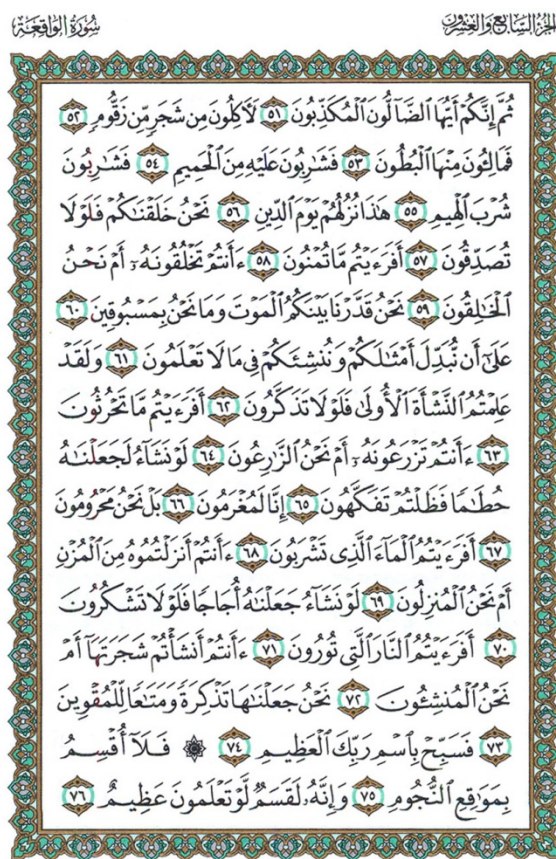 الجزء السابع والعشرون
سورة الواقعة
ثُمَّ إِنَّكُمْ أَيُّهَا ٱلضَّآلُّونَ ٱلْمُكَذِّبُونَ ٥١ لَءَاكِلُونَ مِن شَجَرٍ مِّن زَقُّومٍ ٥٢
فَمَالِـُٔونَ مِنْهَا ٱلْبُطُونَ ٥٣ فَشَٰرِبُونَ عَلَيْهِ مِنَ ٱلْحَمِيمِ ٥٤ فَشَٰرِبُونَ
شُرْبَ ٱلْهِيمِ ٥٥ هَٰذَا نُزُلُهُمْ يَوْمَ ٱلدِّينِ ٥٦ نَحْنُ خَلَقْنَٰكُمْ فَلَوْلَا
تُصَدِّقُونَ ٥٧ أَفَرَءَيْتُم مَّا تُمْنُونَ ٥٨ ءَأَنتُمْ تَخْلُقُونَهُۥٓ أَمْ نَحْنُ
ٱلْخَٰلِقُونَ ٥٩ نَحْنُ قَدَّرْنَا بَيْنَكُمُ ٱلْمَوْتَ وَمَا نَحْنُ بِمَسْبُوقِينَ ٦٠
عَلَىٰٓ أَن نُّبَدِّلَ أَمْثَٰلَكُمْ وَنُنشِئَكُمْ فِى مَا لَا تَعْلَمُونَ ٦١ وَلَقَدْ
عَلِمْتُمُ ٱلنَّشْأَةَ ٱلْأُولَىٰ فَلَوْلَا تَذَكَّرُونَ ٦٢ أَفَرَءَيْتُم مَّا تَحْرُثُونَ
٦٣ ءَأَنتُمْ تَزْرَعُونَهُۥٓ أَمْ نَحْنُ ٱلزَّٰرِعُونَ ٦٤ لَوْ نَشَآءُ لَجَعَلْنَٰهُ
حُطَٰمًا فَظَلْتُمْ تَفَكَّهُونَ ٦٥ إِنَّا لَمُغْرَمُونَ ٦٦ بَلْ نَحْنُ مَحْرُومُونَ
٦٧ أَفَرَءَيْتُمُ ٱلْمَآءَ ٱلَّذِى تَشْرَبُونَ ٦٨ ءَأَنتُمْ أَنزَلْتُمُوهُ مِنَ ٱلْمُزْنِ
أَمْ نَحْنُ ٱلْمُنزِلُونَ ٦٩ لَوْ نَشَآءُ جَعَلْنَٰهُ أُجَاجًا فَلَوْلَا تَشْكُرُونَ
٧٠ أَفَرَءَيْتُمُ ٱلنَّارَ ٱلَّتِى تُورُونَ ٧١ ءَأَنتُمْ أَنشَأْتُمْ شَجَرَتَهَآ أَمْ
نَحْنُ ٱلْمُنشِـُٔونَ ٧٢ نَحْنُ جَعَلْنَٰهَا تَذْكِرَةً وَمَتَٰعًا لِّلْمُقْوِينَ
٧٣ فَسَبِّحْ بِٱسْمِ رَبِّكَ ٱلْعَظِيمِ ٧٤ ۞ فَلَآ أُقْسِمُ
بِمَوَٰقِعِ ٱلنُّجُومِ ٧٥ وَإِنَّهُۥ لَقَسَمٌ لَّوْ تَعْلَمُونَ عَظِيمٌ ٧٦